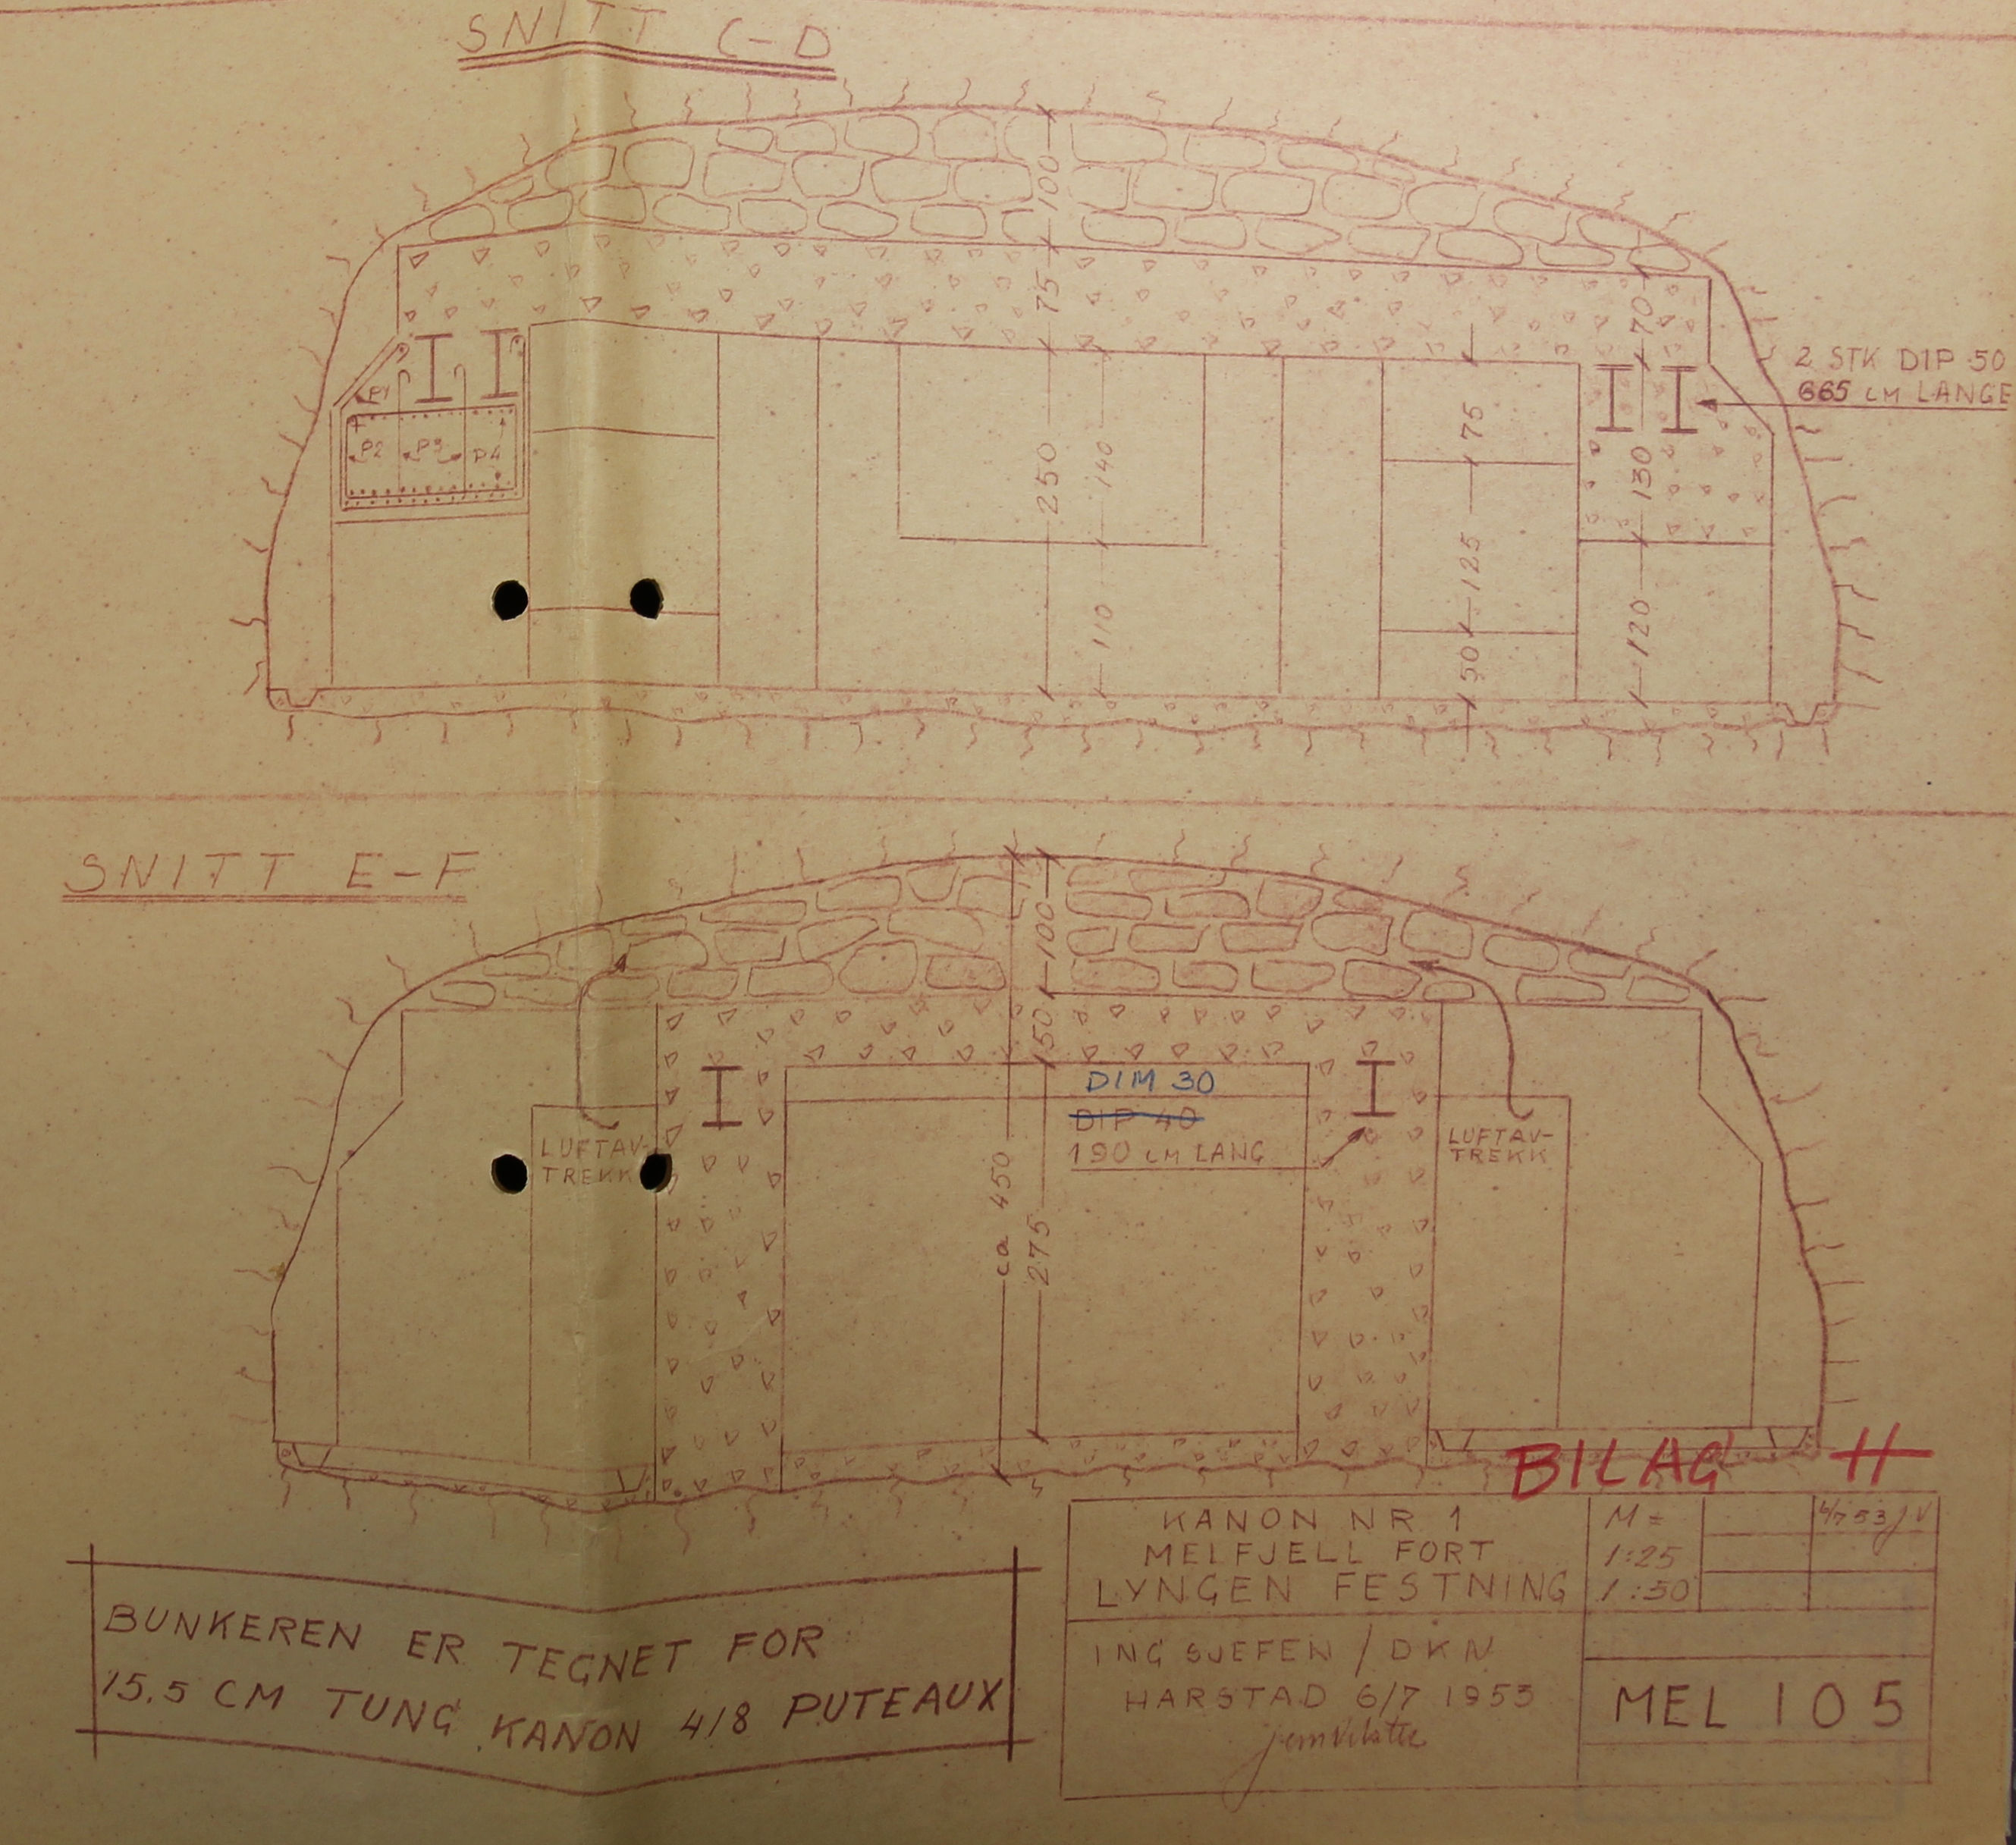 SNITT C-D
100
75
70
2 STK DIP 50
665 CM LANGE
P1
P2 P3 P4
250
140
75
130
125
110
50
120
SNITT E-F
100
50
DIM 30
DIP 40
190 CM LANG
LUFTAV-
TREKK
LUFTAV-
TREKK
ca 450
275
BILAG H
KANON NR 1
MELFJELL FORT
LYNGEN FESTNING
M =
1:25
1:50
6/7 53 JV
ING SJEFEN / DKN
HARSTAD 6/7 1953
MEL 105
BUNKEREN ER TEGNET FOR
15.5 CM TUNG KANON 418 PUTEAUX